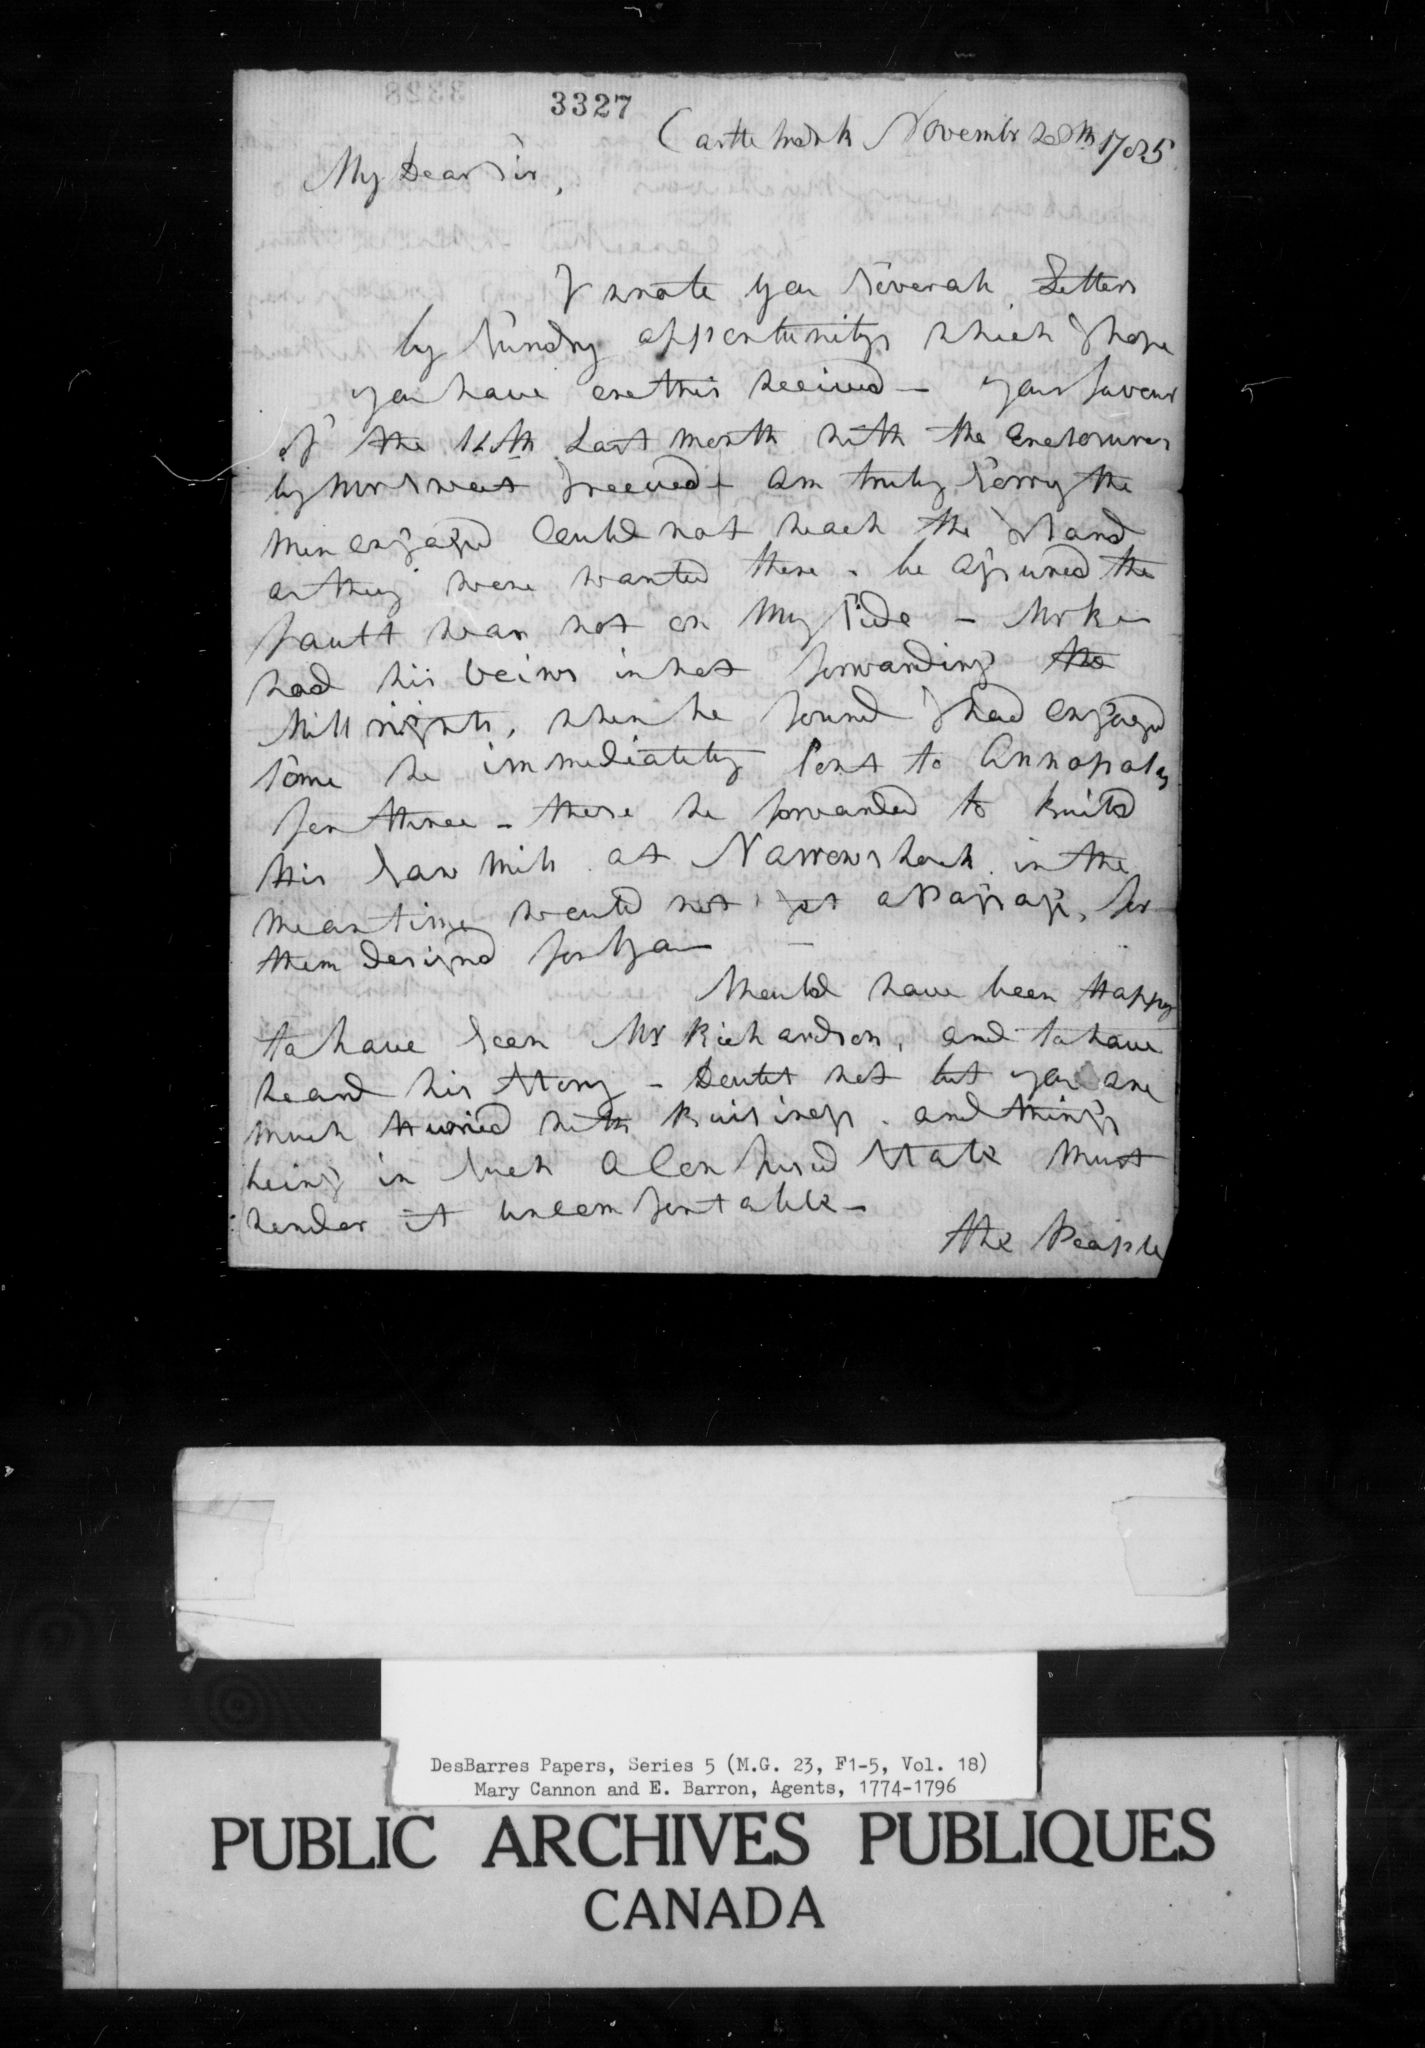 3327
Castle Fredrick Novembr 28th 1785
My Dear Sir,
I wrote you Severah Letters
by Sundry oppertunitys which I hope
you have ere this received — your favour
of the 12th Last month with the Enclosures
by Mr Sweet I receued I am truly Sorry the
men engaged Could not reach the Island
as they were wanted there - be assured the
fault was not on My Side — Mr K
had his veiws in not forwarding the
Millrights, when he found I had engaged
Some he immediately Sent to Annapolis
for three - these he forwarded to build
his Saw Mill at Narrowshock in the
meantime would not get a Passage, for
them designd for You —
Should have been Happy
to have Seen Mr Richardson, and to have
heard his Story - Doubt not but you are
much Hurried with Buisiness. and things
being in Such a Confused State Must
render it uncomfortable -
the People
DesBarres Papers, Series 5 (M.G. 23, F1-5, Vol. 18)
Mary Cannon and E. Barron, Agents, 1774-1796
PUBLIC ARCHIVES PUBLIQUES
CANADA